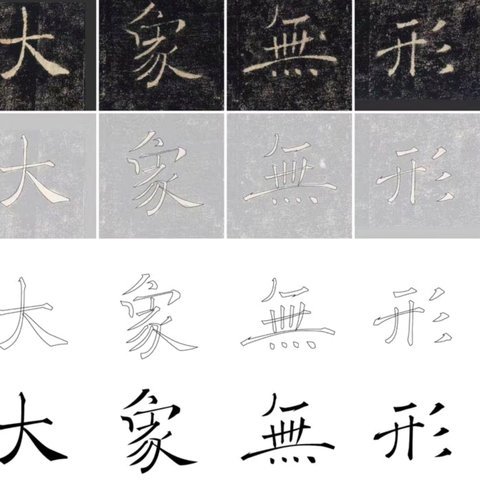 大象無形
大象無形
大象無形
大象無形